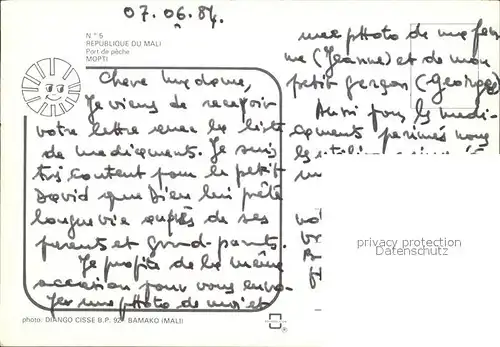 07.06.84.
N° 5
REPUBLIQUE DU MALI
Port de pêche
MOPTI
Chere Madame,
Je viens de recevoir
votre lettre avec la liste
de medicaments. Je suis
très content pour le petit
David que Dieu lui prête
longue vie auprès de ses
parents et grand-parents.
Je profite de la même
occasion pour vous envo-
yer une photo de moi et
une photo de ma fem
me (Jeanne) et de mon
petit garçon (Georges
Aussi pour les medi-
caments perimés nous
les
privacy protection
Datenschutz
photo: DIANGO CISSE B.P. 92 - BAMAKO (MALI)
®